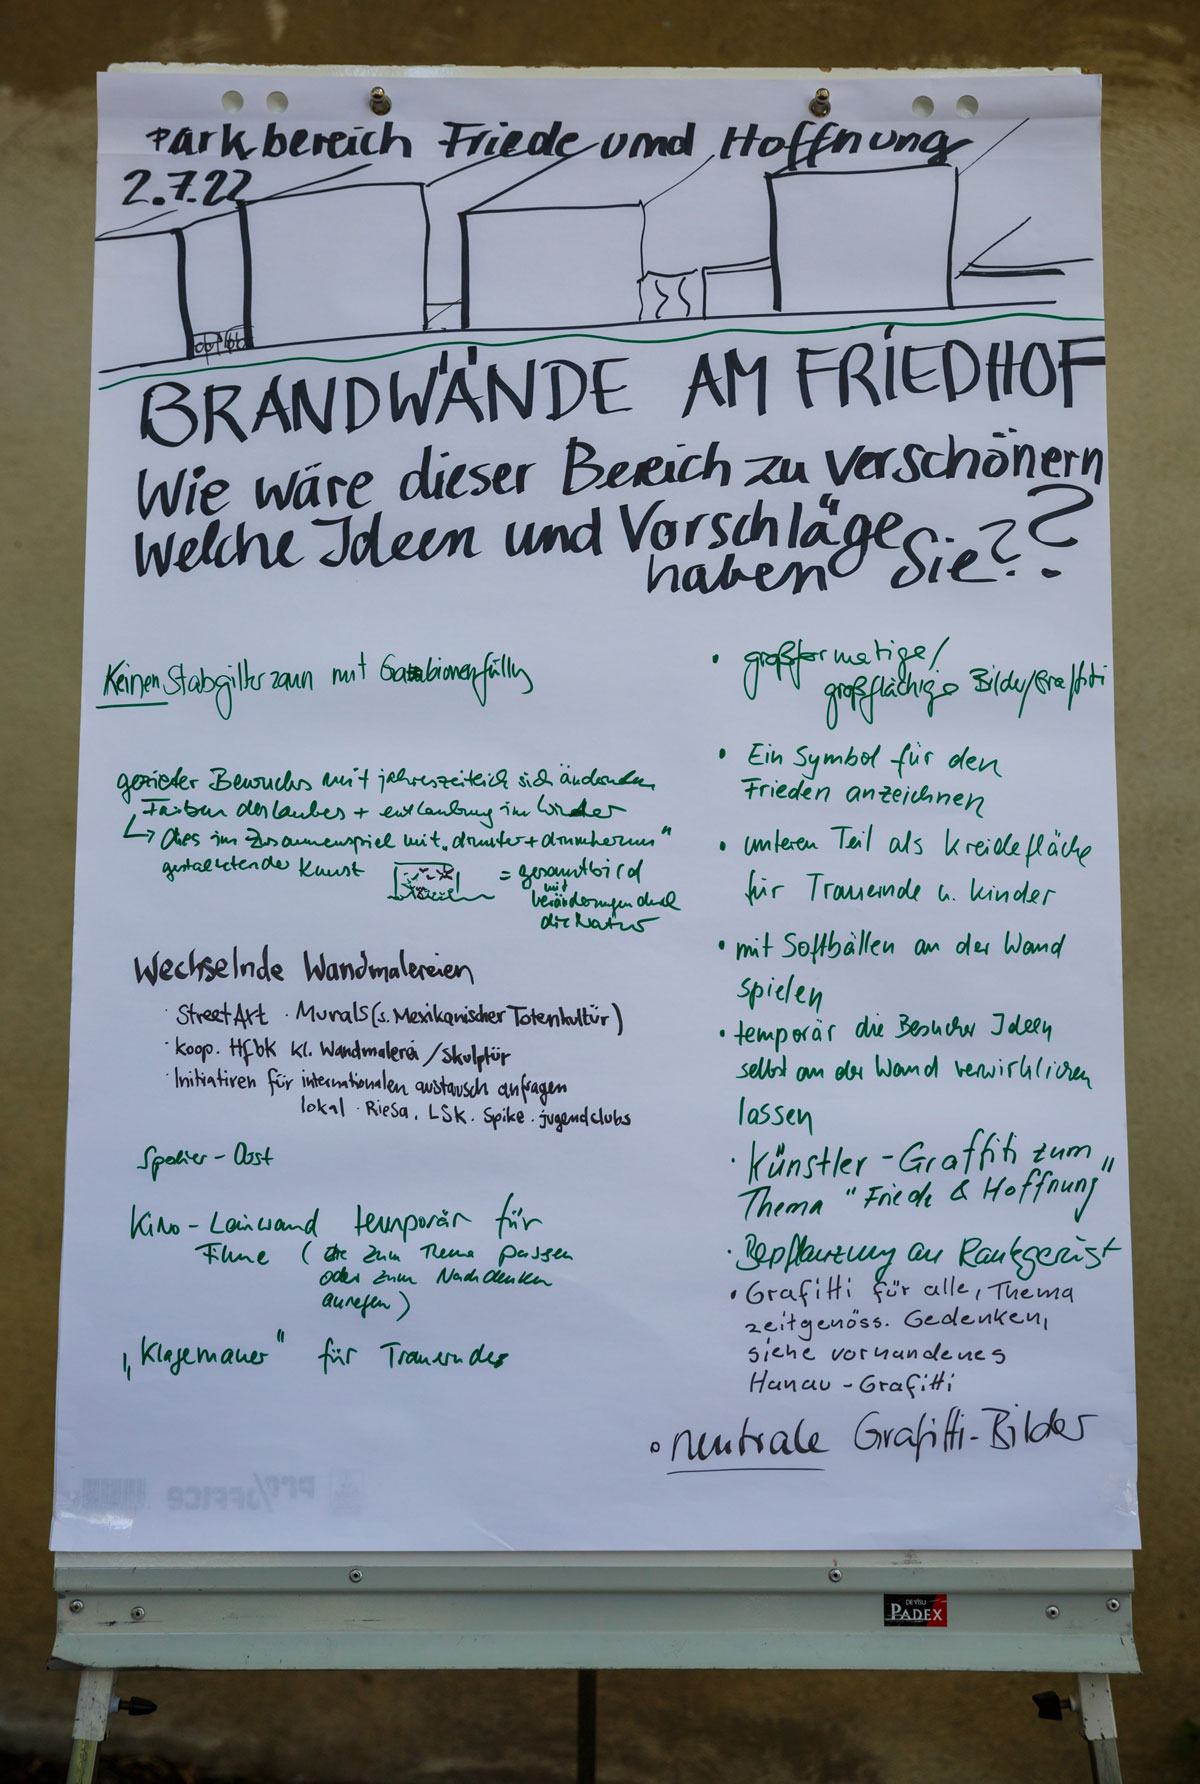 Parkbereich Friede und Hoffnung
2.7.22
BRANDWÄNDE AM FRIEDHOF
Wie wäre dieser Bereich zu verschönern
Welche Ideen und Vorschläge
haben Sie??
Keinen Stabgitterzaun mit
gezielter Bewuchs mit jahreszeitlich sich ändernden
Farben des Laubes + entlaubung im Winter
↳ dies im Zusammenspiel mit „drunter + drumherum"
gestaltender Kunst
= gesamtbild
mit
veränderungen durch
die Natur
Wechselnde Wandmalereien
· StreetArt · Murals (s. Mexikanischer Totenkultür)
· koop. Hfbk kl. Wandmalerei / Skulptür
· Initiativen für internationalen austausch anfragen
lokal · Riesa, LSK. Spike. jugendclubs
Spalier-Obst
Kino-Leinwand temporär für
Filme (die zum Thema passen
oder zum Nachdenken
anregen)
„Klagemauer" für Trauernde
• großformatige/
großflächige Bilder/Graffiti
• Ein Symbol für den
Frieden anzeichnen
• unteren Teil als Kreidefläche
für Trauernde u. Kinder
• mit Softbällen an der Wand
spielen
• temporär die Besucher Ideen
selbst an der Wand verwirklichen
lassen
· Künstler-Graffiti zum
Thema "Friede & Hoffnung"
· Bepflanzung an Rankgerüst
• Grafitti für alle, Thema
zeitgenöss. Gedenken,
siehe vorhandenes
Hanau-Grafitti
∘ neutrale Grafitti-Bilder
DE VISU
PADEX